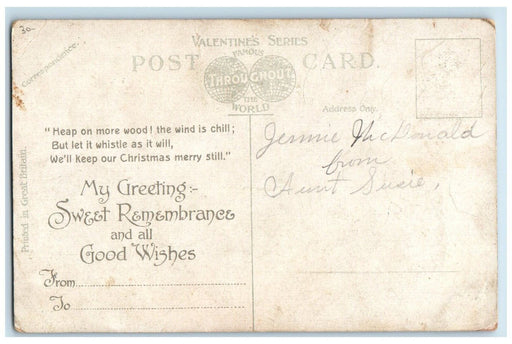 30
VALENTINE'S SERIES
FAMOUS
POST CARD.
THROUGHOUT
THE
WORLD
Correspondence.
Address Only.
"Heap on more wood! the wind is chill;
But let it whistle as it will,
We'll keep our Christmas merry still."
My Greeting:-
Sweet Remembrance
and all
Good Wishes
From
To
Printed in Great Britain.
Jennie McDonald
from
Aunt Susie,